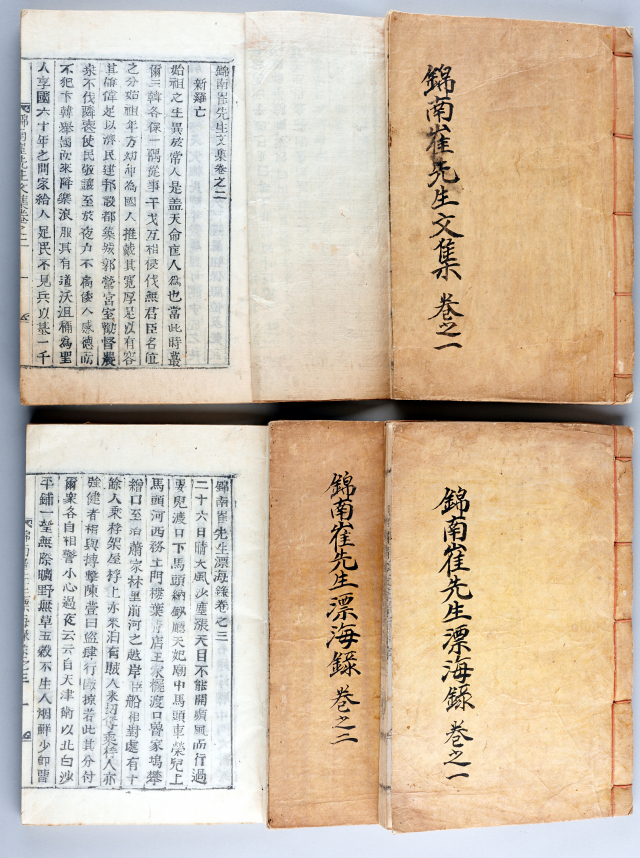 錦南崔先生文集 卷之一
錦南崔先生文集卷之二
新羅亡
始祖之生異於常人是盖天命匡人為也當此時叢
爾三韓各保一隅從事干戈互相侵伐無君臣名位
之分始祖年方幼冲為國人推戴其寬厚足以有容
其偉足以濟民建邦設都築城郭營宮室勸督農
桑不伐隣喪使民敬讓至於夜户不扃倭人感德而
不犯卞韓擧國而來降樂浪服其有道沃沮稱為聖
人享國六十年之間家給人足民不見兵以基一千
錦南崔先生文集卷之二 一
錦南崔先生漂海錄 卷之一
錦南崔先生漂海錄 卷之二
錦南崔先生漂海錄卷之三
二十六日晴大風沙塵漲天目不能開順風而行過
要兒渡口下馬頭納鈔廳天妃廟中馬頭東榮兒上
馬頭河西務土門樓葉青店王家擺渡口魯家塢攀
繒口至泊蕭家林里前河之越岸臣船相對處有十
餘人乘桴架屋桴上亦來泊有賊人來
強健者相與搏擊陳萱曰盜肆行摽掠者此其分付
爾衆各自相警小心過夜云云自天津衛以北白沙
平鋪一望無際曠野無草五穀不生人烟鮮少即曹
錦南崔先生漂海錄卷之三 一